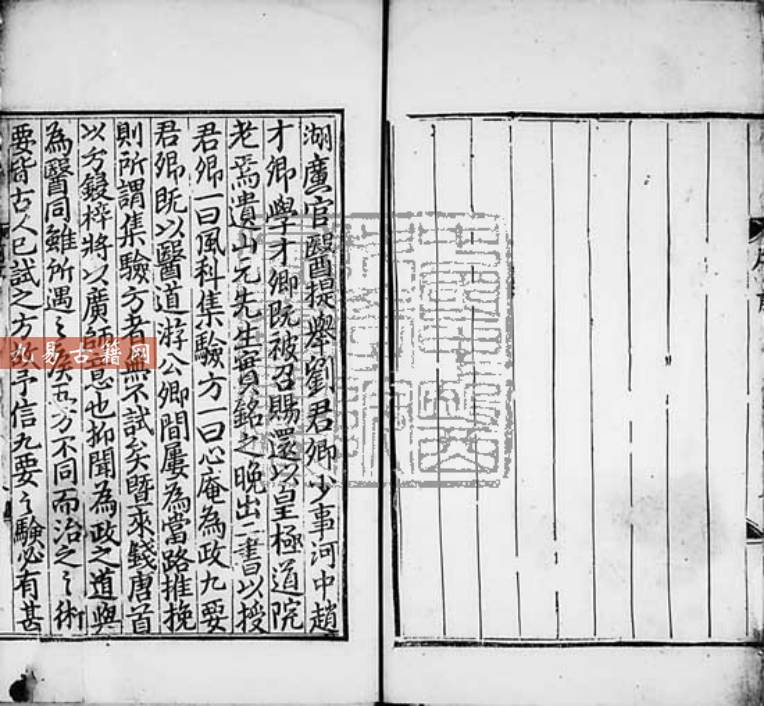 湖廣官醫提舉劉君卿少事河中趙
才卿學才卿既被召賜還以皇極道院
老焉遺山元先生實銘之晚出二書以授
君卿一曰風科集驗方一曰心庵為政九要
君卿既以醫道游公卿間屢為當路推挽
則所謂集驗方者無不試矣暨來錢唐首
以方鋟梓將以廣師意也抑聞為政之道與
為醫同雖所遇之疾五方不同而治之之術
要皆古人已試之方故予信九要之驗必有甚
九易古籍网